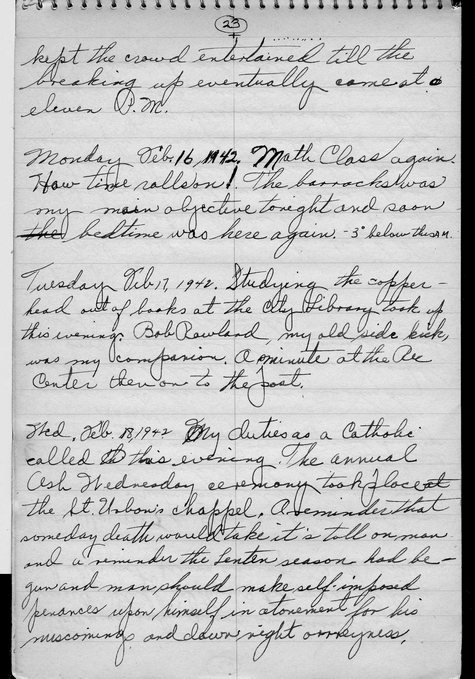 23
kept the crowd entertained till the
breaking up eventually came at
eleven P.M.
Monday Feb. 16, 1942. Math Class again.
How time rolls on! The barracks was
my main objective tonight and soon
the bedtime was here again. -3° below this A.M.
Tuesday Feb. 17, 1942. Studying the copper-
head out of books at the City Library took up
this evening. Bob Rowland, my old side kick,
was my companion. A minute at the Rec
Center then on to the post.
Wed, Feb. 18, 1942 My duties as a Catholic
called this evening. The annual
Ash Wednesday ceremony took place at
the St. Urban's chappel. A reminder that
someday death would take it's toll on man
and a reminder the Lenten season had be-
gun and man should make self-imposed
penances upon himself in atonement for his
miscomings and down right